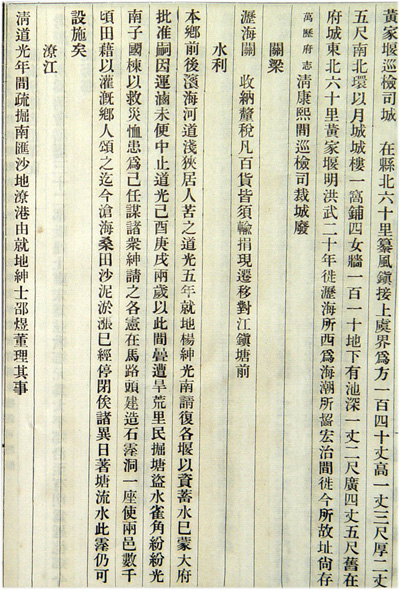 黃家堰巡檢司城　在縣北六十里纂風鎭接上虞界爲方一百四十丈高一丈三尺厚二丈
五尺南北環以月城城樓一窩鋪四女牆一百一十地下有池深一丈二尺廣四丈五尺舊在
府城東北六十里黃家堰明洪武二十年徙瀝海所西爲海潮所齧宏治間徙今所故址尙存
萬歷府志清康熙間巡檢司裁城廢
關梁
瀝海關　收納釐稅凡百貨皆須輸捐現遷移對江鎭塘前
水利
本鄉前後濱海河道淺狹居人苦之道光五年就地楊紳光南請復各堰以資蓄水巳蒙大府
批准嗣因運滷未便中止道光己酉庚戌兩歲以此間疊遭旱荒里民掘塘盜水雀角紛紛光
南子國棟以救災恤患爲己任謀諸衆紳請之各憲在馬路頭建造石霪洞一座使兩邑數千
頃田藉以灌漑鄉人頌之迄今滄海桑田沙泥淤漲巳經停閉俟諸異日著塘流水此霪仍可
設施矣
潦江
清道光年間疏掘南匯沙地潦港由就地紳士邵煜董理其事